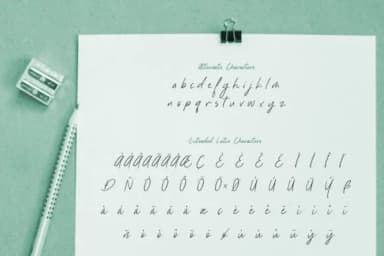 Alternate Characters
a b c d e f g h i j k l m
n o p q r s t u v w x y z
Extended Latin Characters
À Á Â Ã Ä Å Æ Ç È É Ê Ë Ì Í Î Ï
Ð Ñ Ò Ó Ô Õ Ö × Ø Ù Ú Û Ü Ý ß
à á â ã ä å æ ç è é ê ë ì í î ï
ñ ò ó ô õ ö ø ù ú û ü ý ÿ